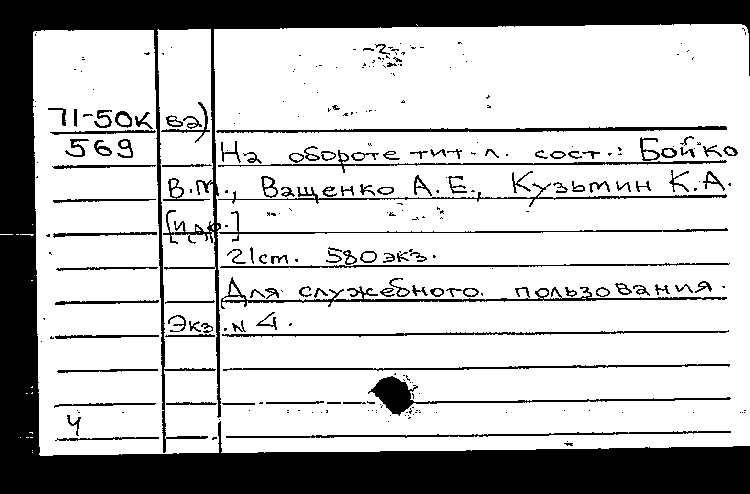 -2-
71-50к ва)
569 На обороте тит. л. сост.: Бойко
В.М., Ващенко А.Е., Кузьмин К.А.
[и др.]
21см. 580 экз.
Для служебного пользования.
Экз. N 4.
Ч